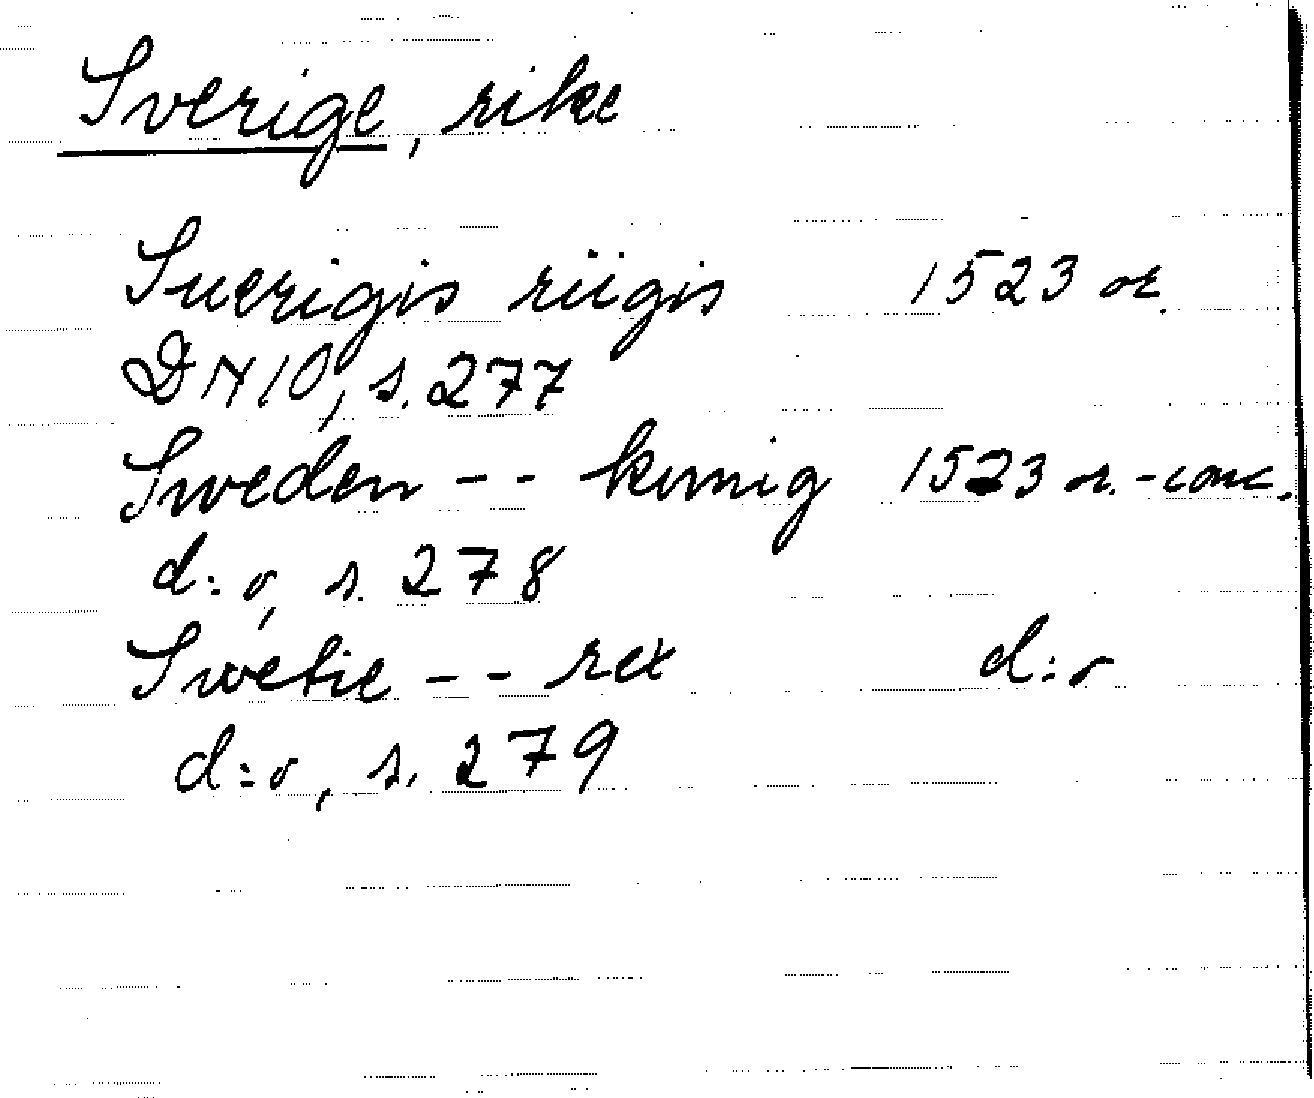 Sverige, rike
Suerigis riigis 1523 or.
DN 10, s. 277
Sweden -- konnig 1523 or.-conc.
d:o, s. 278
Swetie -- rex d:o
d:o, s. 279